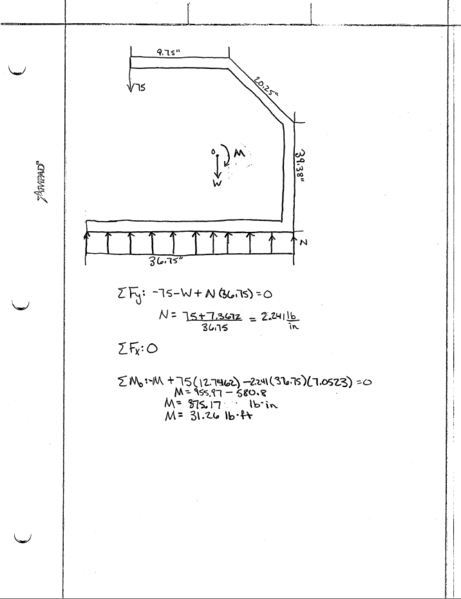 9.75"
20.25"
75
39.38"
O M
W
AMPAD
N
36.75"
ΣFy: -75-W+N(36.75)=0
N = 75+7.3672 / 36.75 = 2.241 lb/in
ΣFx: 0
ΣMo: -M + 75(12.7462) - 2.241(36.75)(7.0523) = 0
M = 955.97 - 580.8
M = 375.17 lb·in
M = 31.26 lb·ft